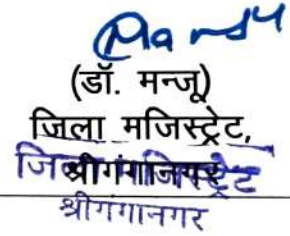 (डॉ. मन्जू)
जिला मजिस्ट्रेट,
श्रीगंगानगर
जिला मजिस्ट्रेट
श्रीगंगानगर